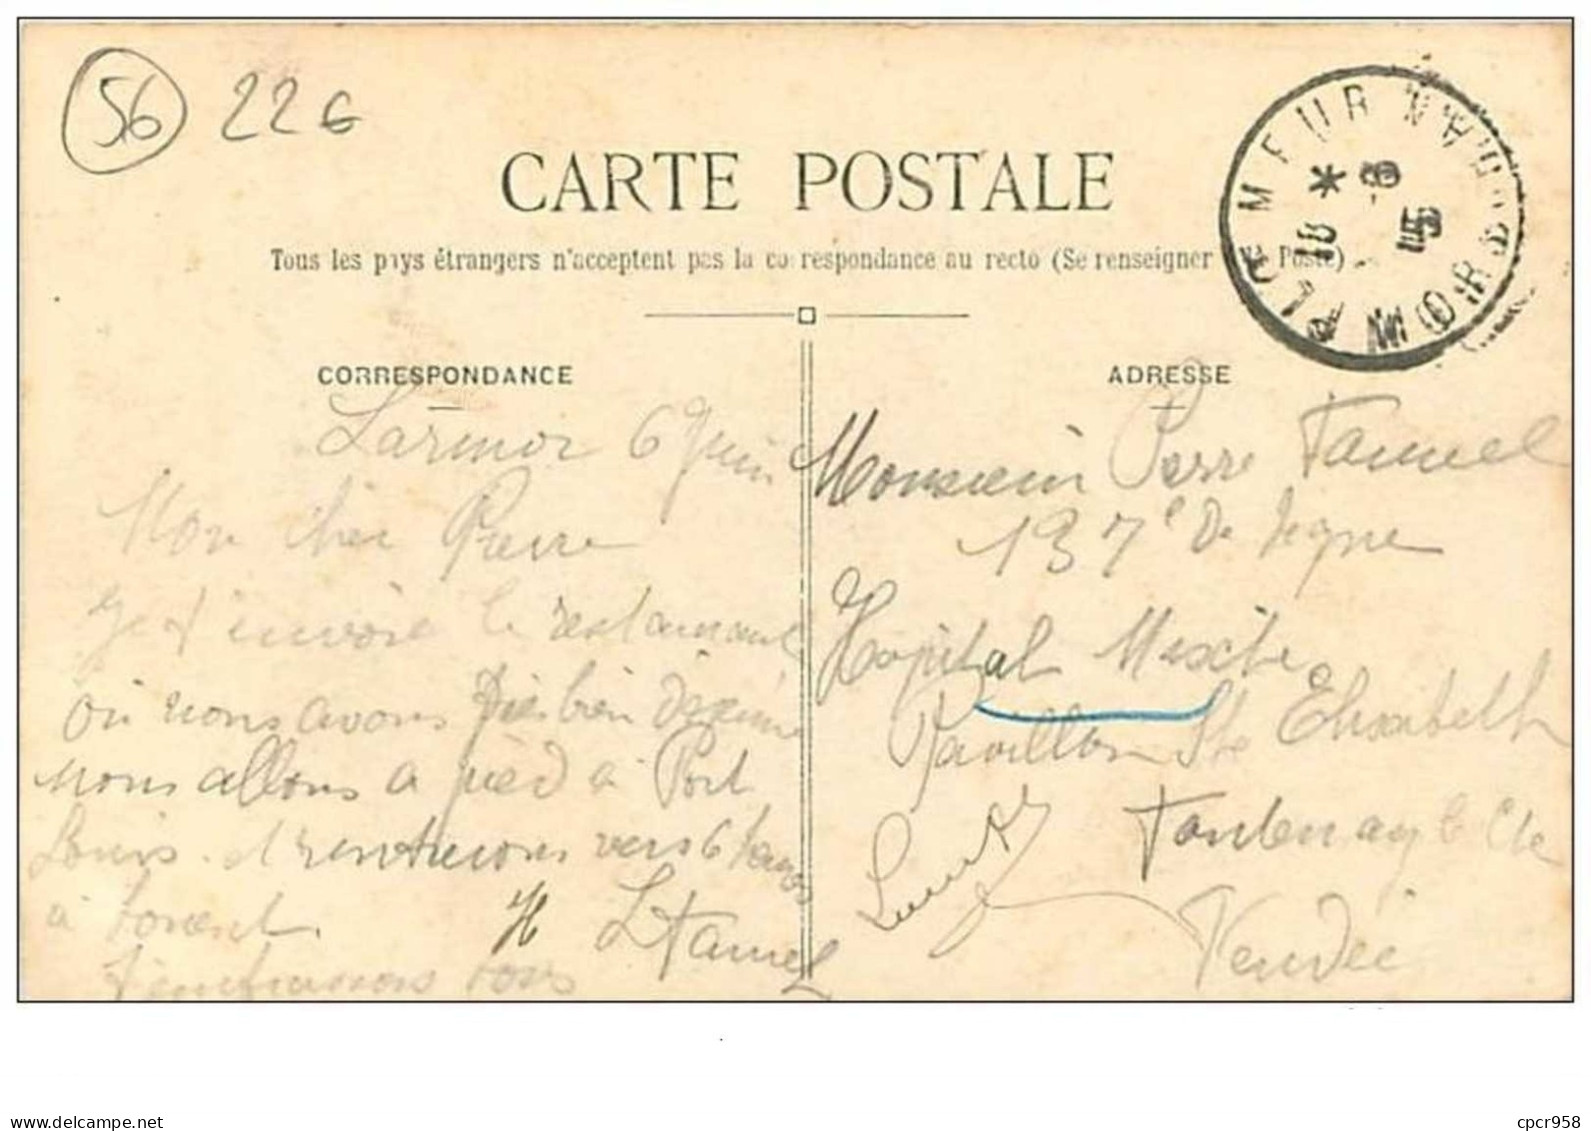 56 226
CARTE POSTALE
Tous les pays étrangers n'acceptent pas la correspondance au recto (Se renseigner à la Poste)
CORRESPONDANCE
Larmor 6 Juin
Mon cher Pierre
Je t'envoie le restaurant
où nous avons très bien déjeuné
nous allons à pied à Port
Louis et rentrerons vers 6 heures
à Lorient.
t'embrassons tous
H LTamel
ADRESSE
Monsieur Pierre Tamel
137e De ligne
Hopital Mixte
Pavillon Ste Elisabeth
Fontenay le Cte
Vendée
PLŒMEUR
MORBIHAN
18 * -6
6 15
www.delcampe.net
cpcr958